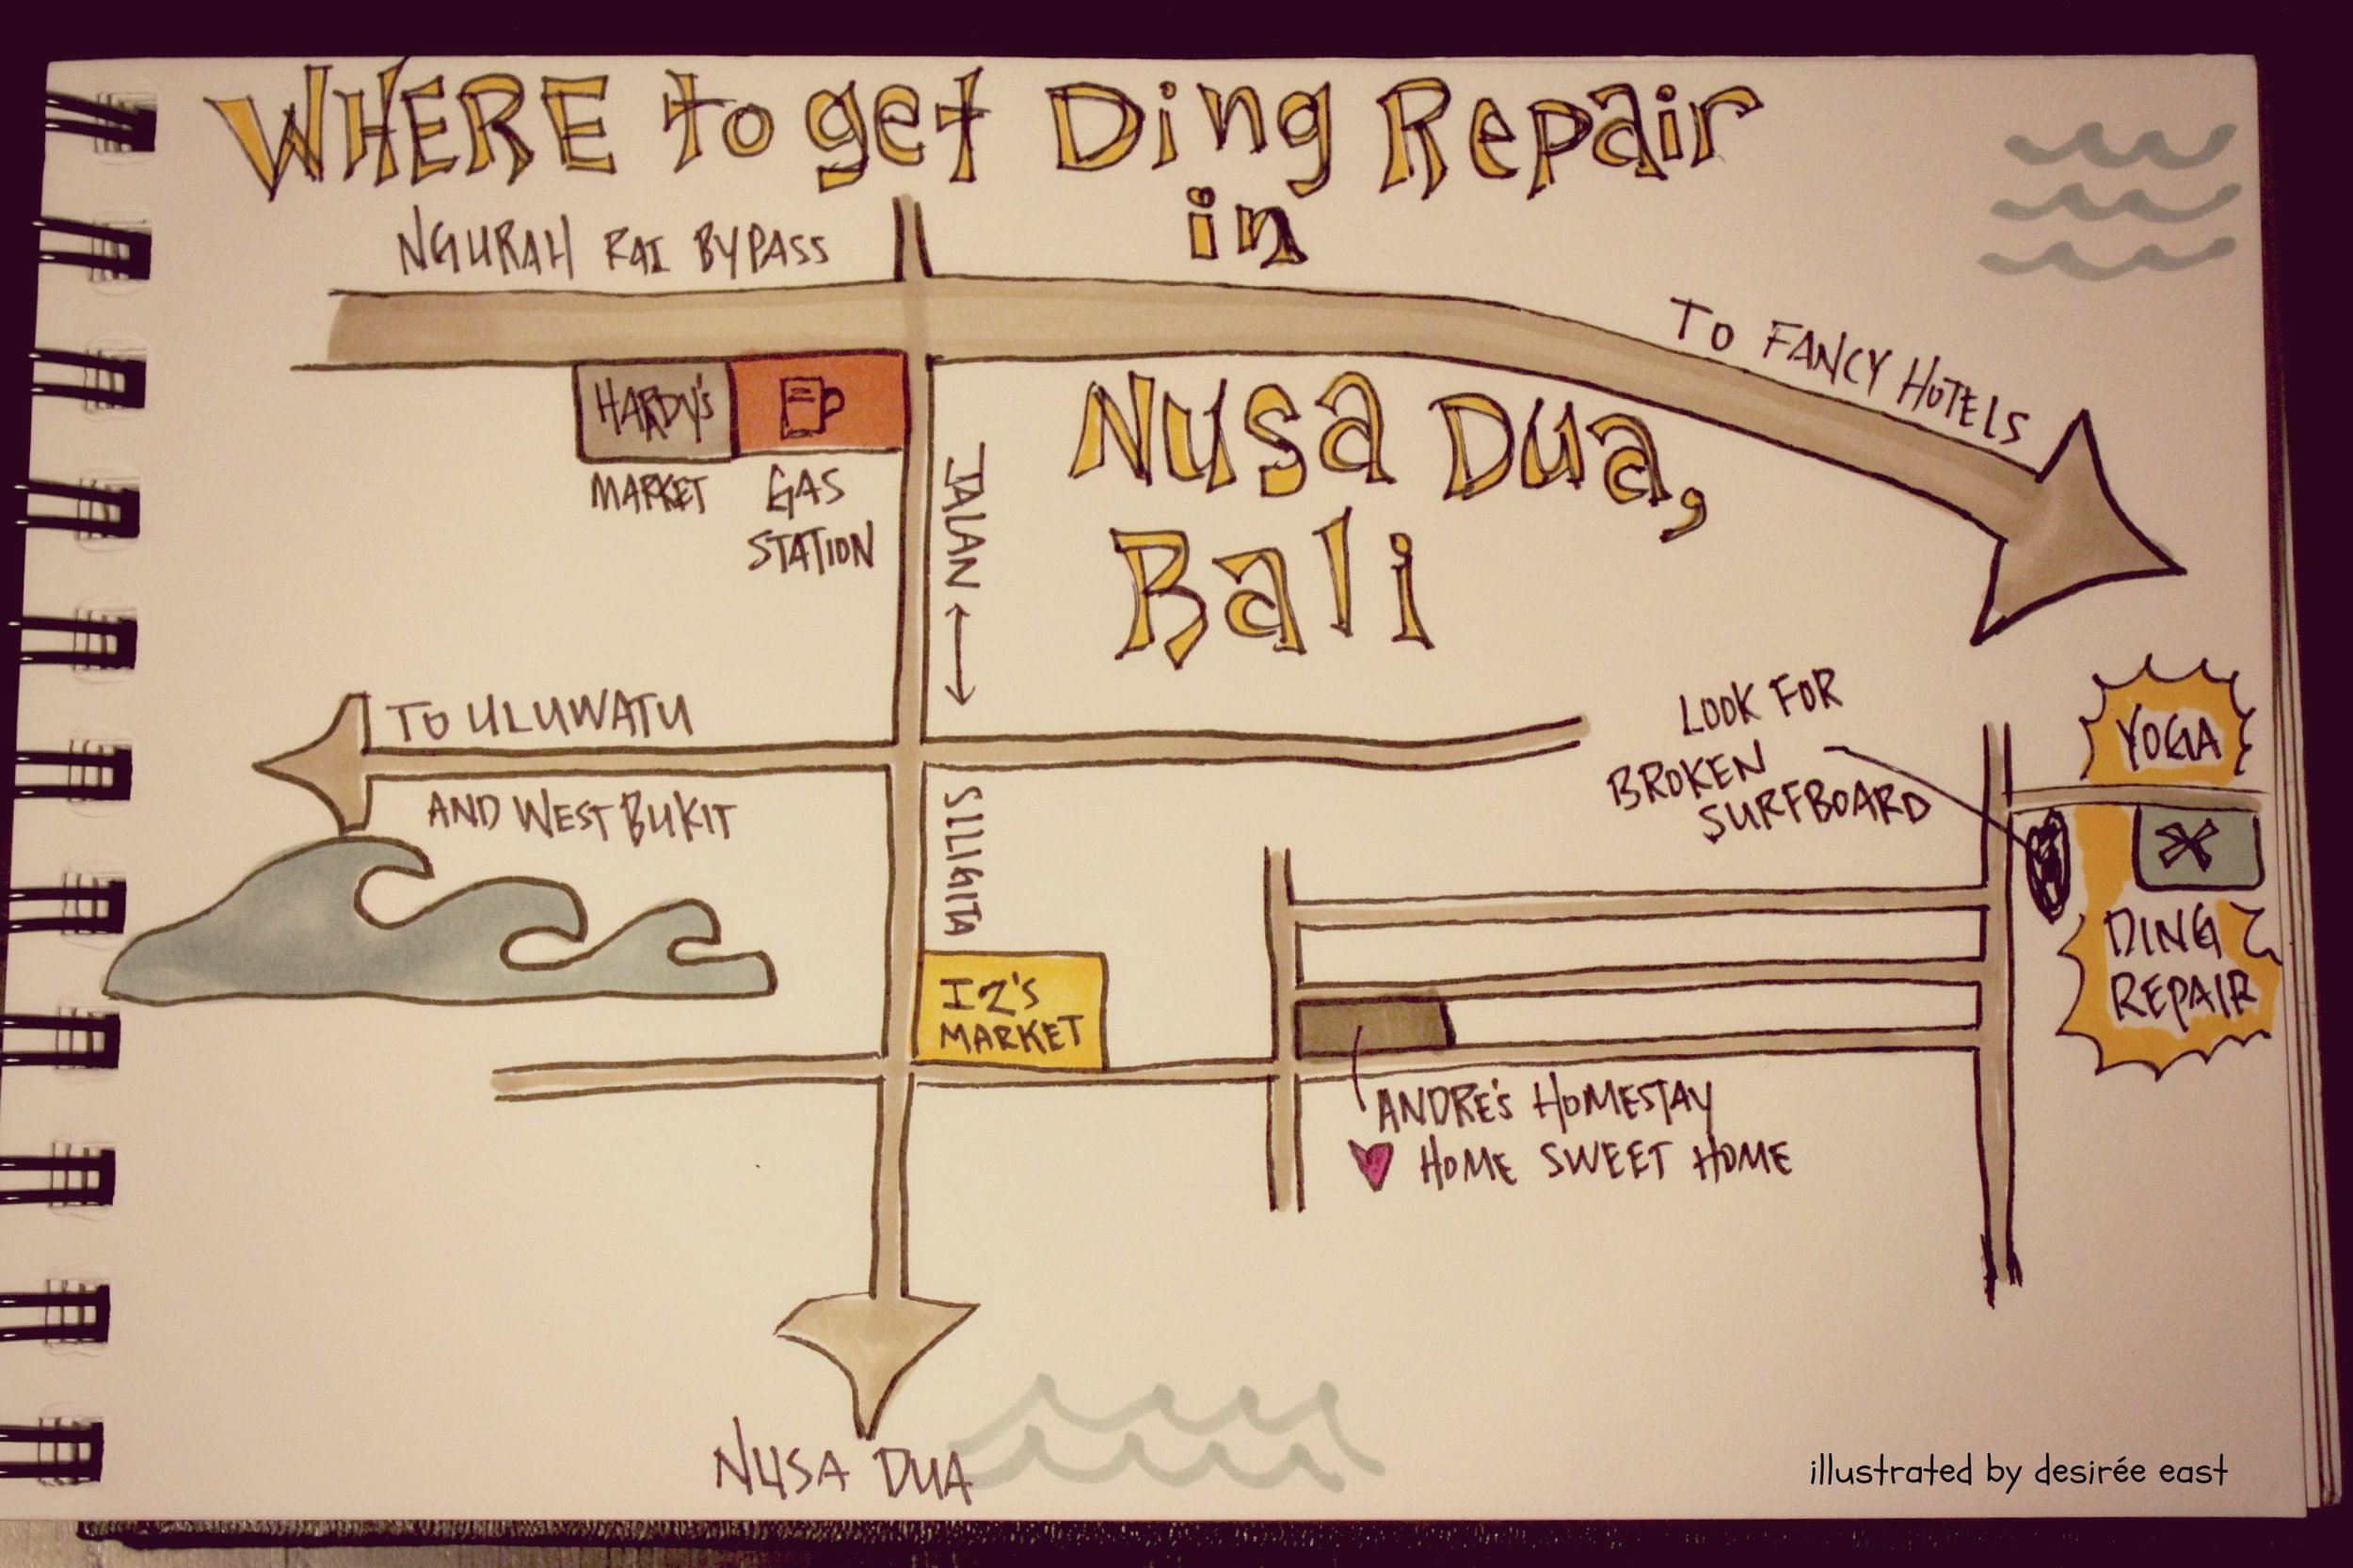 WHERE to get Ding Repair
in
Nusa Dua,
Bali
NGURAH RAI BYPASS
TO FANCY HOTELS
HARDY'S
MARKET
GAS
STATION
JALAN
SILIGITA
TO ULUWATU
AND WEST BUKIT
LOOK FOR
BROKEN
SURFBOARD
YOGA
DING
REPAIR
IZ'S
MARKET
ANDRE'S HOMESTAY
HOME SWEET HOME
NUSA DUA
illustrated by desirée east